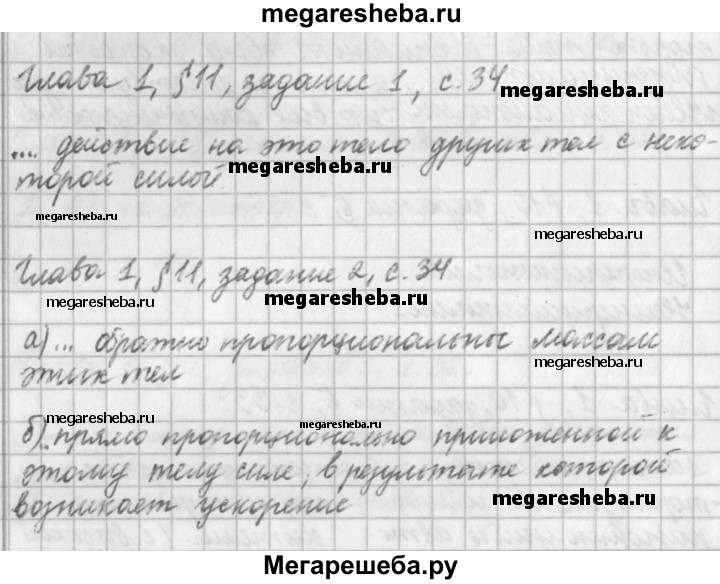 megaresheba.ru
Глава 1, §11, задание 1, с. 34
megaresheba.ru
... действие на это тело других тел с неко-
megaresheba.ru
торой силой.
megaresheba.ru
megaresheba.ru
Глава 1, §11, задание 2, с. 34
megaresheba.ru
megaresheba.ru
а) ... обратно пропорциональны массам
megaresheba.ru
этих тел
megaresheba.ru
б) ... прямо пропорционально приложенной к
этому телу силе, в результате которой
megaresheba.ru
возникает ускорение
Мегарешеба.ру